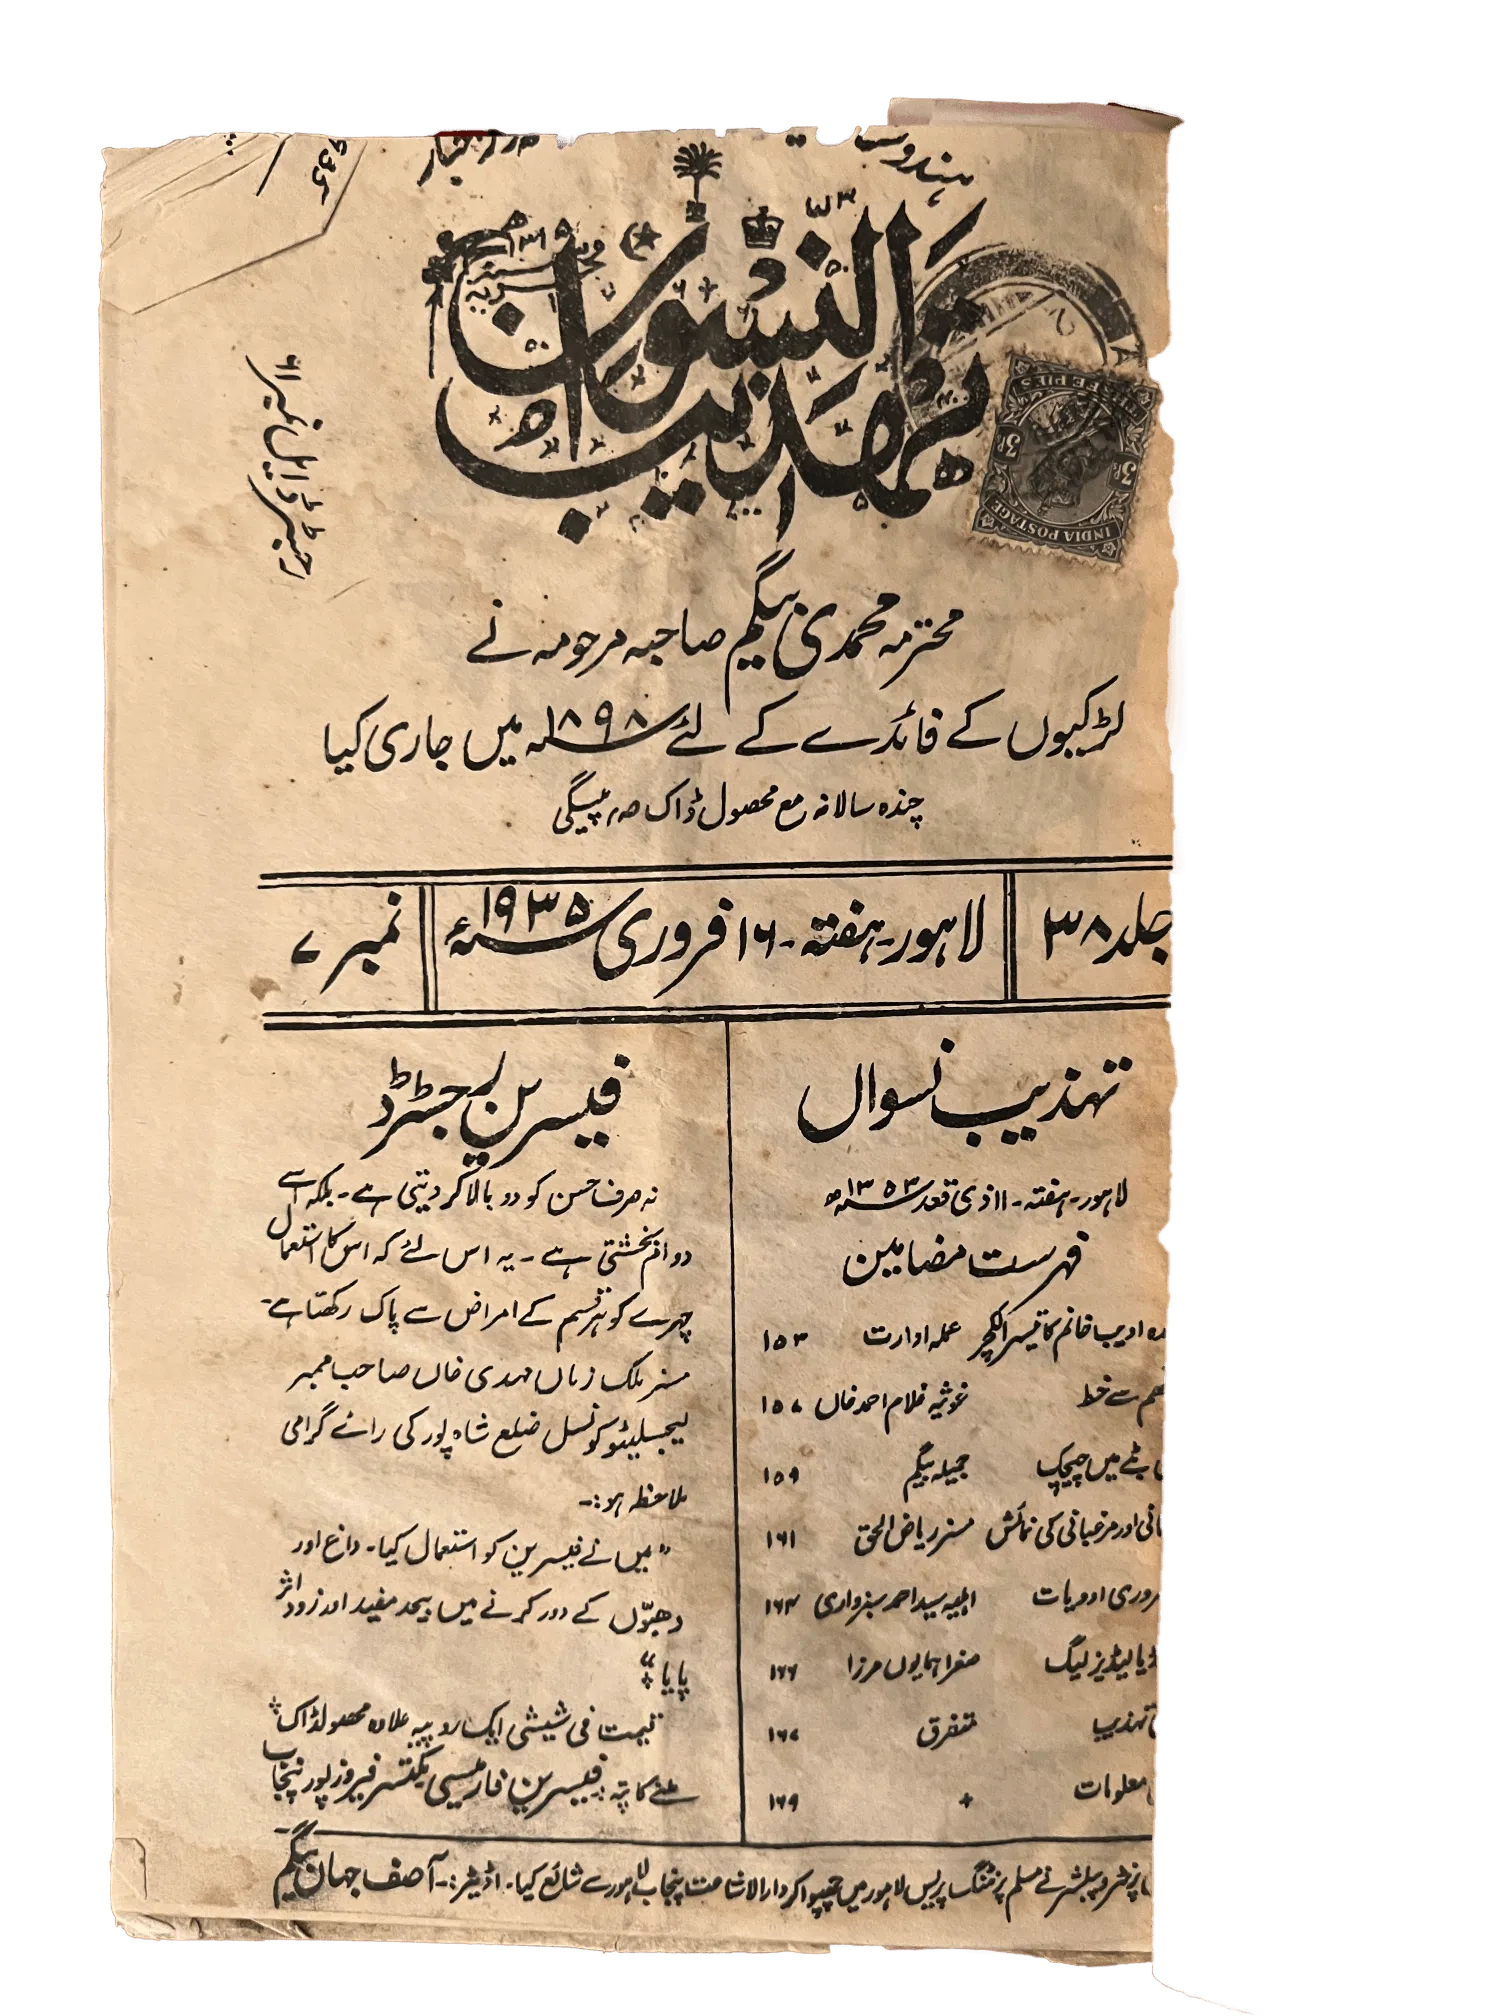 تہذیب النسوان
۱۳۱۵ھ
INDIA POSTAGE
THREE PIES
3P 3P
رجسٹرڈ ایل نمبر ۶۱
محترمہ محمدی بیگم صاحبہ مرحومہ نے
لڑکیوں کے فائدے کے لئے ۱۸۹۸ میں جاری کیا
چندہ سالانہ مع محصول ڈاک صہ پیشگی
جلد ۳۸
لاہور۔ ہفتہ۔ ۱۶ فروری ۱۹۳۵ء
نمبر ۷
تہذیب نسواں
لاہور۔ ہفتہ۔ ۱۱ ذی قعد ۱۳۵۳ھ
فہرست مضامین
ادیب خانم کا تیسرا لکچر عملہ ادارت ۱۵۳
سے خط غوثیہ غلام احمد خاں ۱۵۷
میں چیچک جمیلہ بیگم ۱۵۹
اور مرغبانی کی نمائش مسز ریاض الحق ۱۶۱
روری ادویات اہلیہ سید احمد سبزواری ۱۶۴
یا لیڈیز لیگ صغرا ہمایوں مرزا ۱۶۶
تہذیب متفرق ۱۶۷
معلومات + ۱۶۹
فیسرین رجسٹرڈ
نہ صرف حسن کو دوبالا کر دیتی ہے۔ بلکہ اسے
دوام بخشتی ہے۔ یہ اس لئے کہ اس کا استعمال
چہرے کو ہر قسم کے امراض سے پاک رکھتا ہے۔
مسز ملک زماں مہدی خاں صاحب ممبر
لیجسلیٹو کونسل ضلع شاہ پور کی رائے گرامی
ملاحظہ ہو:۔
"میں نے فیسرین کو استعمال کیا۔ داغ اور
دھبوں کے دور کرنے میں بیحد مفید اور زود اثر
پایا"+
قیمت فی شیشی ایک روپیہ علاوہ محصولڈاک+
ملنے کا پتہ: فیسرین فارمیسی مکتسر فیروزپور پنجاب
پرنٹر و پبلشر نے مسلم پرنٹنگ پریس لاہور میں چھپوا کر دارالاشاعت پنجاب لاہور سے شائع کیا۔ اڈیٹر:۔ آصف جہاں بیگم